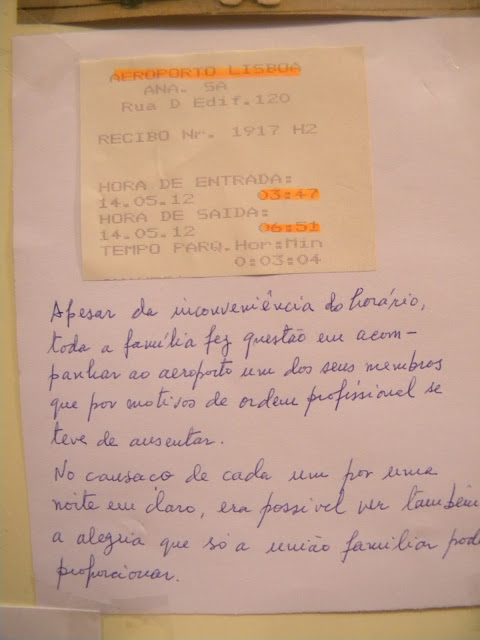 AEROPORTO LISBOA
ANA. SA
Rua D Edif.120
RECIBO Nr. 1917 H2
HORA DE ENTRADA:
14.05.12 03:47
HORA DE SAIDA:
14.05.12 06:51
TEMPO PARQ.Hor:Min
0:03:04
Apesar da inconveniência do horário,
toda a família fez questão em acom-
panhar ao aeroporto um dos seus membros
que por motivos de ordem profissional se
teve de ausentar.
No cansaço de cada um por uma
noite em claro, era possível ver também
a alegria que só a união familiar pode
proporcionar.